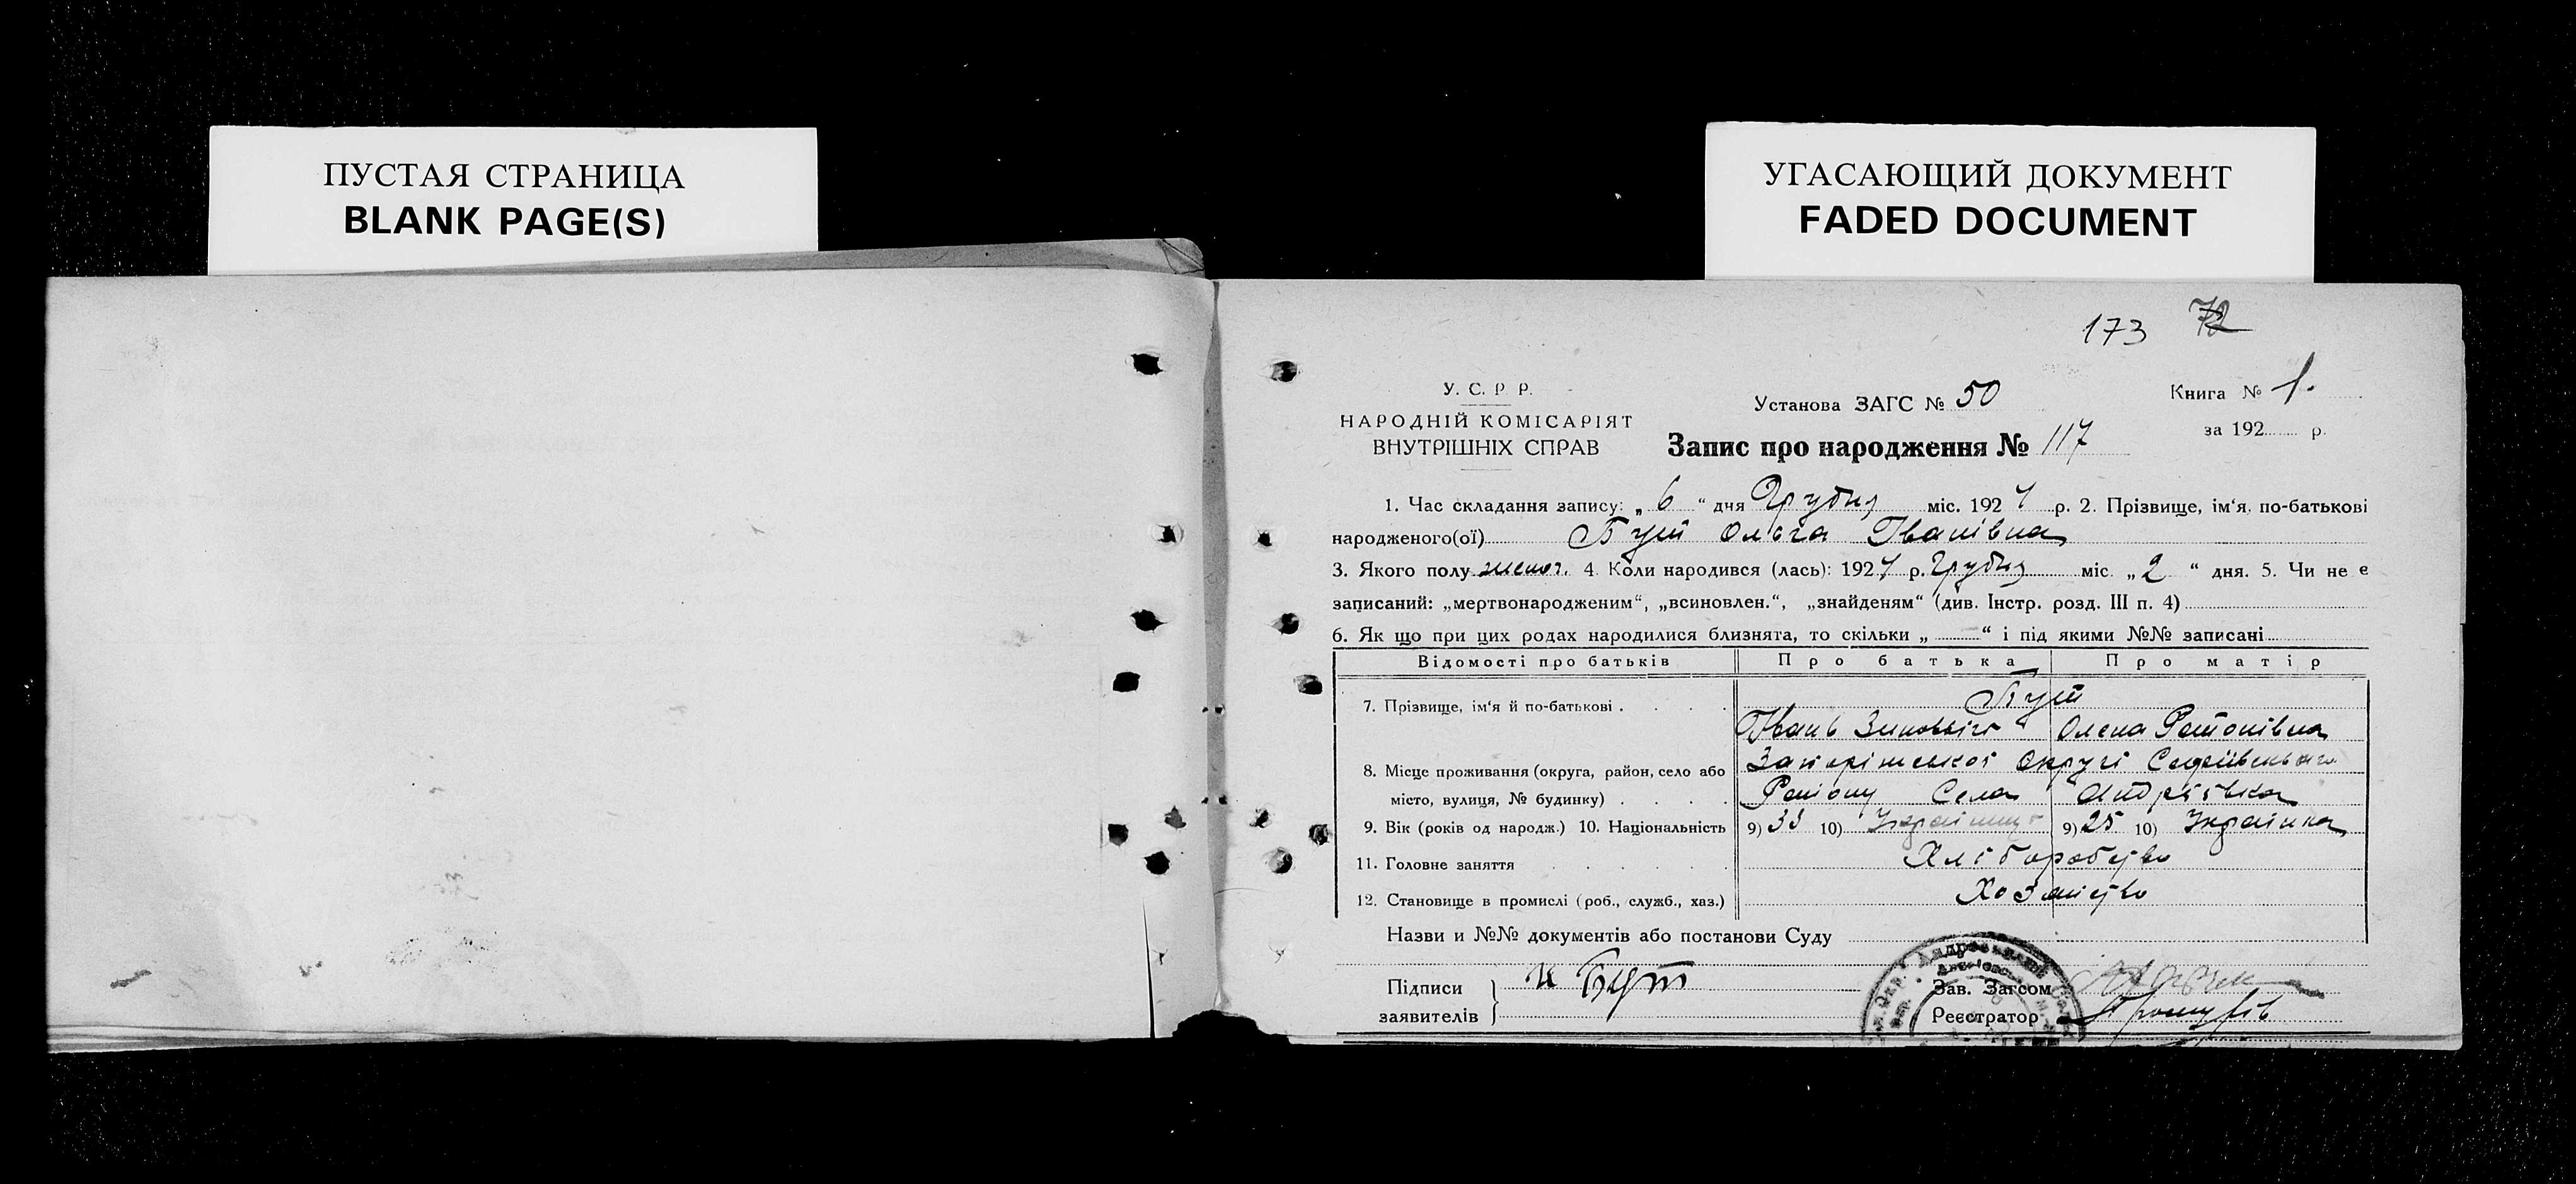 ПУСТАЯ СТРАНИЦА
BLANK PAGE(S)
УГАСАЮЩИЙ ДОКУМЕНТ
FADED DOCUMENT
173 72
У. С. Р Р.
НАРОДНІЙ КОМІСАРІЯТ
ВНУТРІШНІХ СПРАВ
Установа ЗАГС № 50
Книга № 1.
за 192 р.
Запис про народження № 117
1. Час складання запису: „ 6 “ дня Грудня міс. 1927 р. 2. Прізвище, ім‘я, по-батькові
народженого(ої) Бут Ольга Іванівна
3. Якого полу женоч. 4. Коли народився (лась): 1927 р. Грудня міс. „ 2 “ дня. 5. Чи не є
записаний: „мертвонародженим“, „всиновлен.“, „знайденям“ (див. Інстр. розд. III п. 4)
6. Як що при цих родах народилися близнята, то скільки „ “ і під якими №№ записані
Відомості про батьків Про батька Про матір
7. Прізвище, ім‘я й по-батькові . . . . Бут
Іванъ Зиновьіч Олена
8. Місце проживання (округа, район, село або Запоріжської Округі
місто, вулиця, № будинку) . . . . Раіону Села Андріівка
9. Вік (років од народж.) 10. Національність 9) 33 10) Украінец 9) 25 10) Украінка
11. Головне заняття . . . . Хліборобство
12. Становище в промислі (роб., служб., хаз.) Хозяиство
Назви и №№ документів або постанови Суду
Підписи заявителів и Бут
Зав. Загсом
Реєстратор